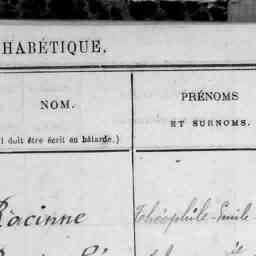 HABÉTIQUE.
NOM.
PRÉNOMS
ET SURNOMS.
l doit être écrit en bâtarde.)
Racinne
Théophile-Emile-